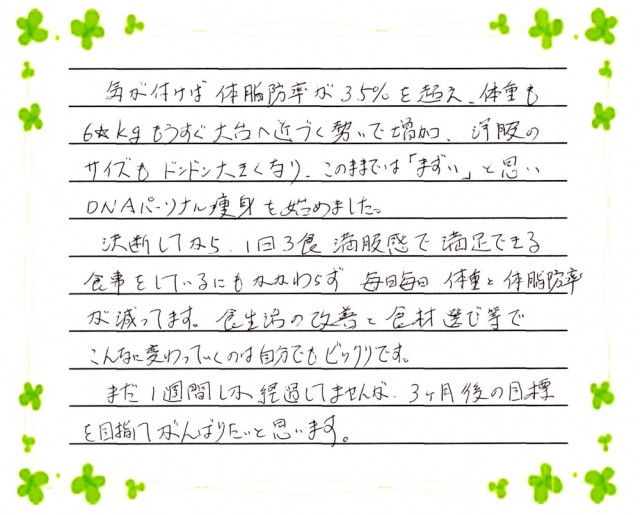 気が付けば体脂肪率が35%を超え、体重も
6☆kgもうすぐ大台へ近づく勢いで増加、洋服の
サイズもドンドン大きくなり、このままでは「まずい」と思い
DNAパーソナル痩身を始めました。
決断してから、1日3食満腹感で満足できる
食事をしているにもかかわらず毎日毎日体重と体脂肪率
が減ってます。食生活の改善と食材選び等で
こんなに変わっていくのは自分でもビックリです。
まだ1週間しか経過してませんが、3ヶ月後の目標
を目指してがんばりたいと思います。